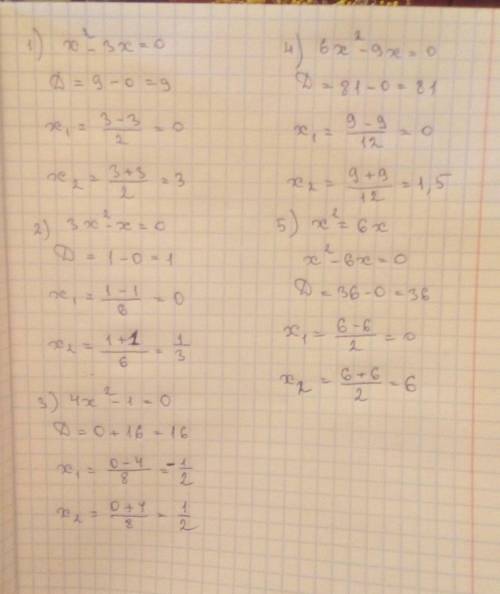 1) x² - 3x = 0
D = 9 - 0 = 9
x₁ = (3-3)/2 = 0
x₂ = (3+3)/2 = 3
2) 3x² - x = 0
D = 1 - 0 = 1
x₁ = (1-1)/6 = 0
x₂ = (1+1)/6 = 1/3
3) 4x² - 1 = 0
D = 0 + 16 = 16
x₁ = (0-4)/8 = -1/2
x₂ = (0+4)/8 = 1/2
4) 6x² - 9x = 0
D = 81 - 0 = 81
x₁ = (9-9)/12 = 0
x₂ = (9+9)/12 = 1,5
5) x² = 6x
x² - 6x = 0
D = 36 - 0 = 36
x₁ = (6-6)/2 = 0
x₂ = (6+6)/2 = 6